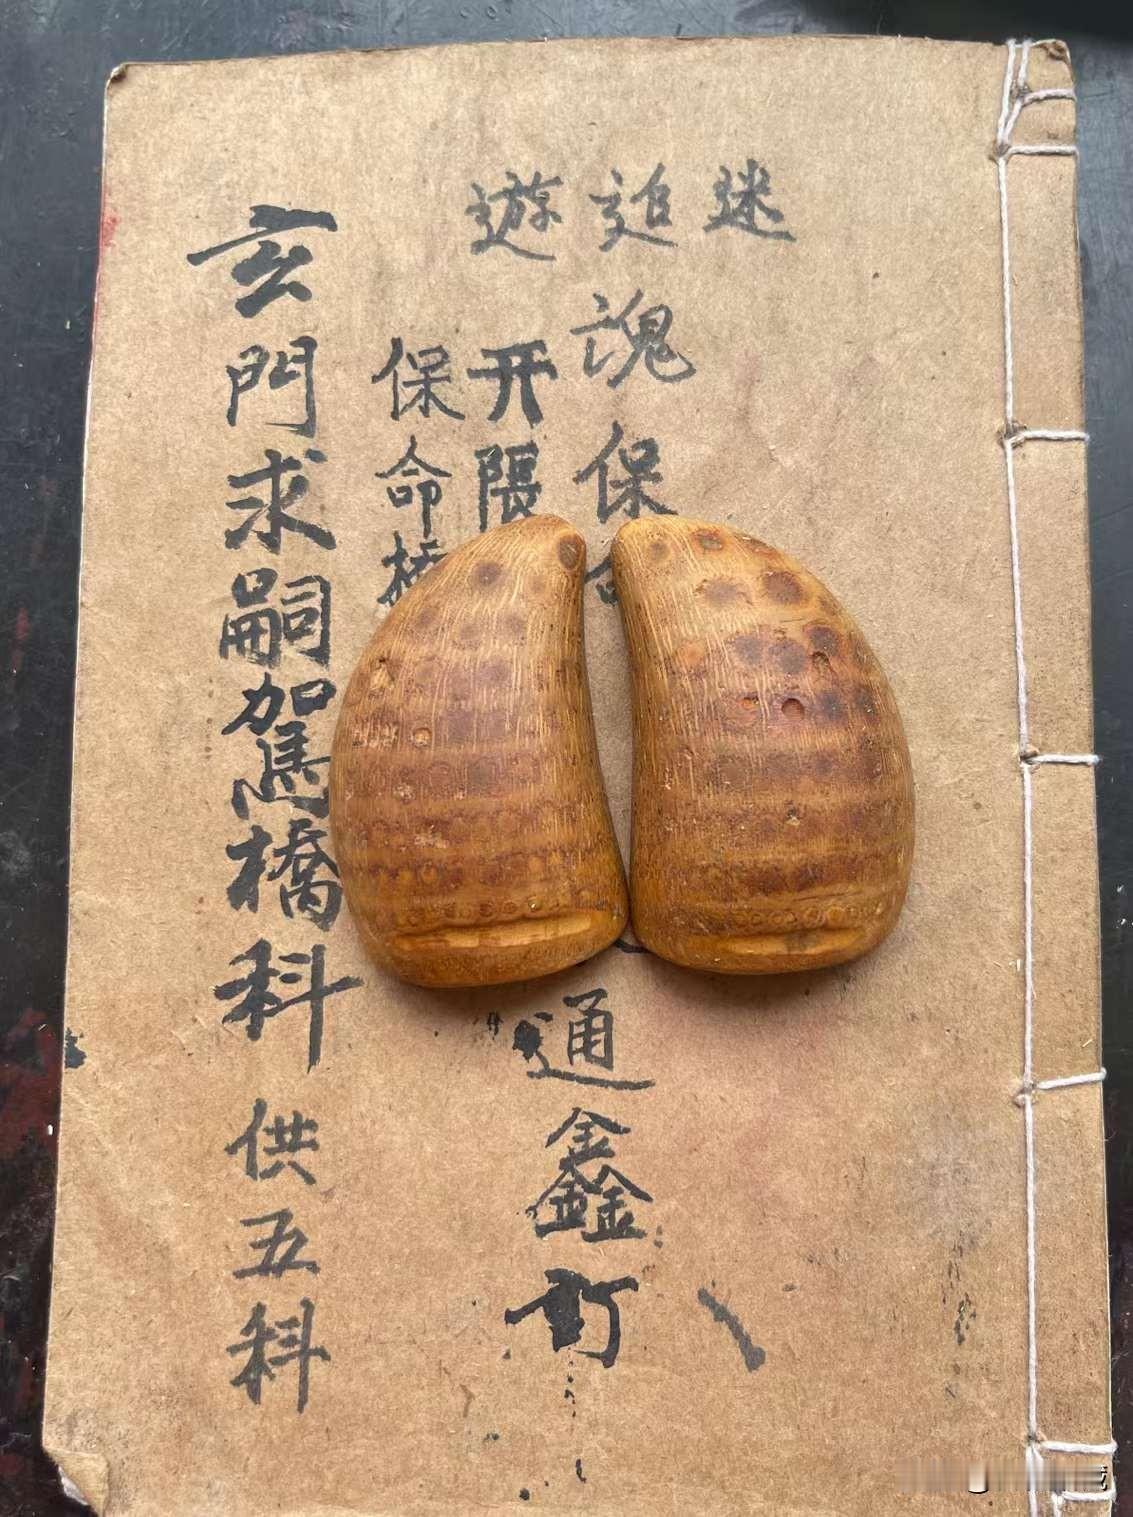 迷
追魂保
遊
开張
保命橋
玄門求嗣駕橋科 供五科
通鑫訂